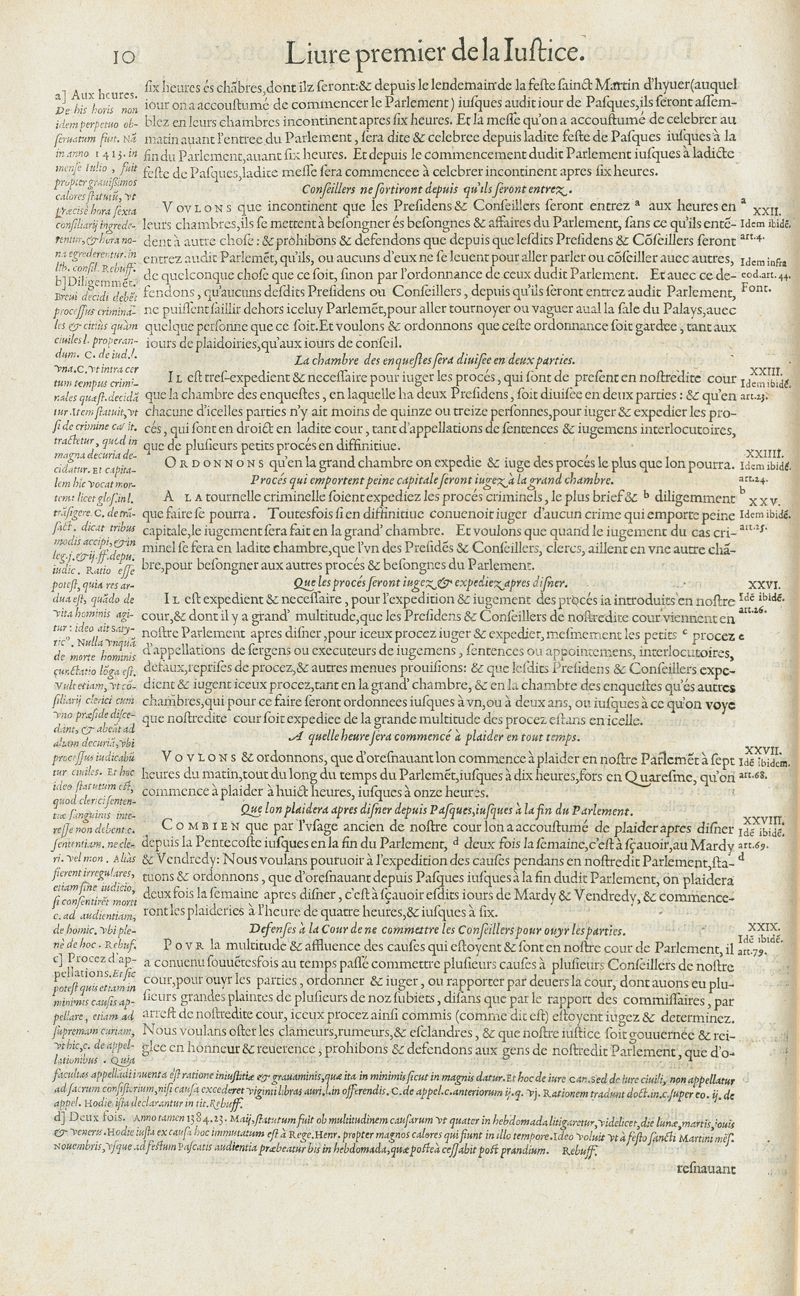 10
Liure premier de la Iustice.
six heures és chãbres, dont ilz seront: & depuis le lendemain de la feste sainct Martin d'hyuer (auquel
iour on a accoustumé de commencer le Parlement) iusques audit iour de Pasques, ils seront assem-
blez en leurs chambres incontinent apres six heures. Et la messe qu'on a accoustumé de celebrer au
matin auant l'entree du Parlement, sera dite & celebree depuis ladite feste de Pasques iusques à la
fin du Parlement, auant six heures. Et depuis le commencement dudit Parlement iusques à ladicte
feste de Pasques, ladite messe sera commencee à celebrer incontinent apres six heures.
Conseillers ne sortiront depuis qu'ils seront entrez.
VOVLONS que incontinent que les Presidens & Conseillers seront entrez a aux heures en
leurs chambres, ils se mettent à besongner és besongnes & affaires du Parlement, sans ce qu'ils entẽ-
dent à autre chose: & prohibons & defendons que depuis que lesdits Presidens & Cõseillers seront
entrez audit Parlemẽt, qu'ils, ou aucuns d'eux ne se leuent pour aller parler ou cõseiller auec autres,
de quelconque chose que ce soit, sinon par l'ordonnance de ceux dudit Parlement. Et auec ce de-
fendons, qu'aucuns desdits Presidens ou Conseillers, depuis qu'ils seront entrez audit Parlement,
ne puissent saillir dehors iceluy Parlemẽt, pour aller tournoyer ou vaguer aual la sale du Palays, auec
quelque personne que ce soit. Et voulons & ordonnons que ceste ordonnance soit gardee, tant aux
iours de plaidoiries, qu'aux iours de conseil.
La chambre des enquestes sera diuisee en deux parties.
IL est tres-expedient & necessaire pour iuger les procés, qui sont de present en nostredite cour
que la chambre des enquestes, en laquelle ha deux Presidens, soit diuisée en deux parties: & qu'en
chacune d'icelles parties n'y ait moins de quinze ou treize personnes, pour iuger & expedier les pro-
cés, qui sont en droict en ladite cour, tant d'appellations de sentences & iugemens interlocutoires,
que de plusieurs petits procés en diffinitiue.
ORDONNONS qu'en la grand chambre on expedie & iuge des procés le plus que lon pourra.
Procés qui emportent peine capitale seront iugez à la grand chambre.
A LA tournelle criminelle soient expediez les procés criminels, le plus brief & b diligemment
que faire se pourra. Toutesfois si en diffinitiue conuenoit iuger d'aucun crime qui emporte peine
capitale, le iugement sera fait en la grand' chambre. Et voulons que quand le iugement du cas cri-
minel se fera en ladite chambre, que l'vn des Presidẽs & Conseillers, clercs, aillent en vne autre chã-
bre, pour besongner aux autres procés & besongnes du Parlement.
Que les procés seront iugez & expediez apres disner.
IL est expedient & necessaire, pour l'expedition & iugement des procés ia introduits en nostre
cour, & dont il y a grand' multitude, que les Presidens & Conseillers de nostredite cour viennent en
nostre Parlement apres disner, pour iceux procez iuger & expedier, mesmement les petits c procez
d'appellations de sergens ou executeurs de iugemens, sentences ou appointemens, interlocutoires,
defaux, reprises de procez, & autres menues prouisions: & que lesdits Presidens & Conseillers expe-
dient & iugent iceux procez, tant en la grand' chambre, & en la chambre des enquestes qu'és autres
chambres, qui pour ce faire seront ordonnees iusques à vn, ou à deux ans, ou iusques à ce qu'on voye
que nostredite cour soit expediee de la grande multitude des procez estans en icelle.
A quelle heure sera commencé à plaider en tout temps.
VOVLONS & ordonnons, que d'oresnauant lon commence à plaider en nostre Parlemẽt à sept
heures du matin, tout du long du temps du Parlemẽt, iusques à dix heures, fors en Quaresme, qu'on
commence à plaider à huict heures, iusques à onze heures.
Que lon plaidera apres disner depuis Pasques, iusques à la fin du Parlement.
COMBIEN que par l'vsage ancien de nostre cour lon a accoustumé de plaider apres disner
depuis la Pentecoste iusques en la fin du Parlement, d deux fois la semaine, c'est à sçauoir, au Mardy
& Vendredy: Nous voulans pouruoir à l'expedition des causes pendans en nostredit Parlement, sta-
tuons & ordonnons, que d'oresnauant depuis Pasques iusques à la fin dudit Parlement, on plaidera
deux fois la semaine apres disner, c'est à sçauoir esdits iours de Mardy & Vendredy, & commence-
ront les plaideries à l'heure de quatre heures, & iusques à six.
Defenses à la Cour de ne commettre les Conseillers pour ouyr les parties.
POVR la multitude & affluence des causes qui estoyent & sont en nostre cour de Parlement, il
a conuenu souuẽtesfois au temps passé commettre plusieurs causes à plusieurs Conseillers de nostre
cour, pour ouyr les parties, ordonner & iuger, ou rapporter par deuers la cour, dont auons eu plu-
sieurs grandes plaintes de plusieurs de noz subiets, disans que par le rapport des commissaires, par
arrest de nostredite cour, iceux procez ainsi commis (comme dit est) estoyent iugez & determinez.
Nous voulans oster les clameurs, rumeurs, & esclandres, & que nostre iustice soit gouuernée & rei-
glee en honneur & reuerence, prohibons & defendons aux gens de nostredit Parlement, que d'o-
a] Aux heures.
De his horis non
idem perpetuo ob-
seruatum fuit. Nã
in anno 1413. in
mense Iulio, fuit
propter grauissimos
calores statutũ, vt
præcisè hora sexta
consiliarij ingrede-
rentur, & hora no-
na egrederentur. in
lib. consil. Rebuff.
b] Diligemmẽt.
Breui decidi debẽt
processus crimina-
les & citiùs quàm
ciuiles l. properan-
dum. C. de iud. l.
vna. C. vt intra cer
tum tempus crimi-
nales quæst. decidã
tur. Item statuit, vt
si de crimine ca! it.
tractetur, quod in
magna decuria de-
cidatur. Et capita-
lem hic vocat mor-
tem: licet glos. in l.
trãsigere. C. de trã-
sact. dicat tribus
modis accipi, & in
leg. j. & ij. ff. de pu.
iudic. Ratio esse
potest, quia res ar-
dua est, quãdo de
vita hominis agi-
tur: ideo ait Saty-
ric9. Nulla vnquã
de morte hominis
cunctatio lõga est.
Vult etiam, vt cõ-
siliarij clerici cum
vno præside disce-
dant, & abeãt ad
aliam decuriã, vbi
processus iudicabũ
tur ciuiles. Et hoc
ideo statutum est,
quod clerici senten-
tiæ sanguinis inte-
resse non debent: c.
sententiam. ne cle-
ri. vel mon. Aliàs
fierent irregulares,
etiam sine iudicio,
si consentirẽt morti
c. ad audientiam,
de homic. vbi ple-
nè de hoc. Rebuf.
c] Procez d'ap-
pellations. Et sic
potest quis etiam in
minimis causis ap-
pellare, etiam ad
supremam curiam,
vt hic, c. de appel-
lationibus. Quia
facultas appellãdi inuenta est ratione iniustitiæ & grauaminis, quæ ita in minimis sicut in magnis datur. Et hoc de iure can. Sed de iure ciuili, non appellatur
ad sacrum consistorium, nisi causa excederet viginti libras auri, l. in offerendis. C. de appel. c. anteriorum ij. q. vj. Rationem tradunt doct. in c. super eo. ij. de
appel. Hodie ista declarantur in tit. Rebuff.
d] Deux fois. Anno tamen 1384. 23. Maij, statutum fuit ob multitudinem causarum vt quater in hebdomada litigaretur, videlicet, die lunæ, martis, iouis
& veneris. Hodie iusta ex causa hoc immutatum est à Rege. Henr. propter magnos calores qui fiunt in illo tempore. Ideo voluit vt à festo sancti Martini mẽs.
Nouembris, vsque ad festum Pascatis audientia præbeatur bis in hebdomada, quæ posteà cessabit post prandium. Rebuff.
a
XXII.
Idem ibidẽ.
art.4.
Idem infra
eod. art. 44.
Font.
XXIII.
Idem ibidẽ.
art.23.
XXIIII.
Idem ibidẽ.
art.24.
b
XXV.
Idem ibidẽ.
art.25.
XXVI.
Idẽ ibidẽ.
art.26.
c
XXVII.
Idẽ ibidem.
art.68.
XXVIII.
Idẽ ibidẽ.
art.69.
d
XXIX.
Idẽ ibidẽ.
art.79.
resnauant